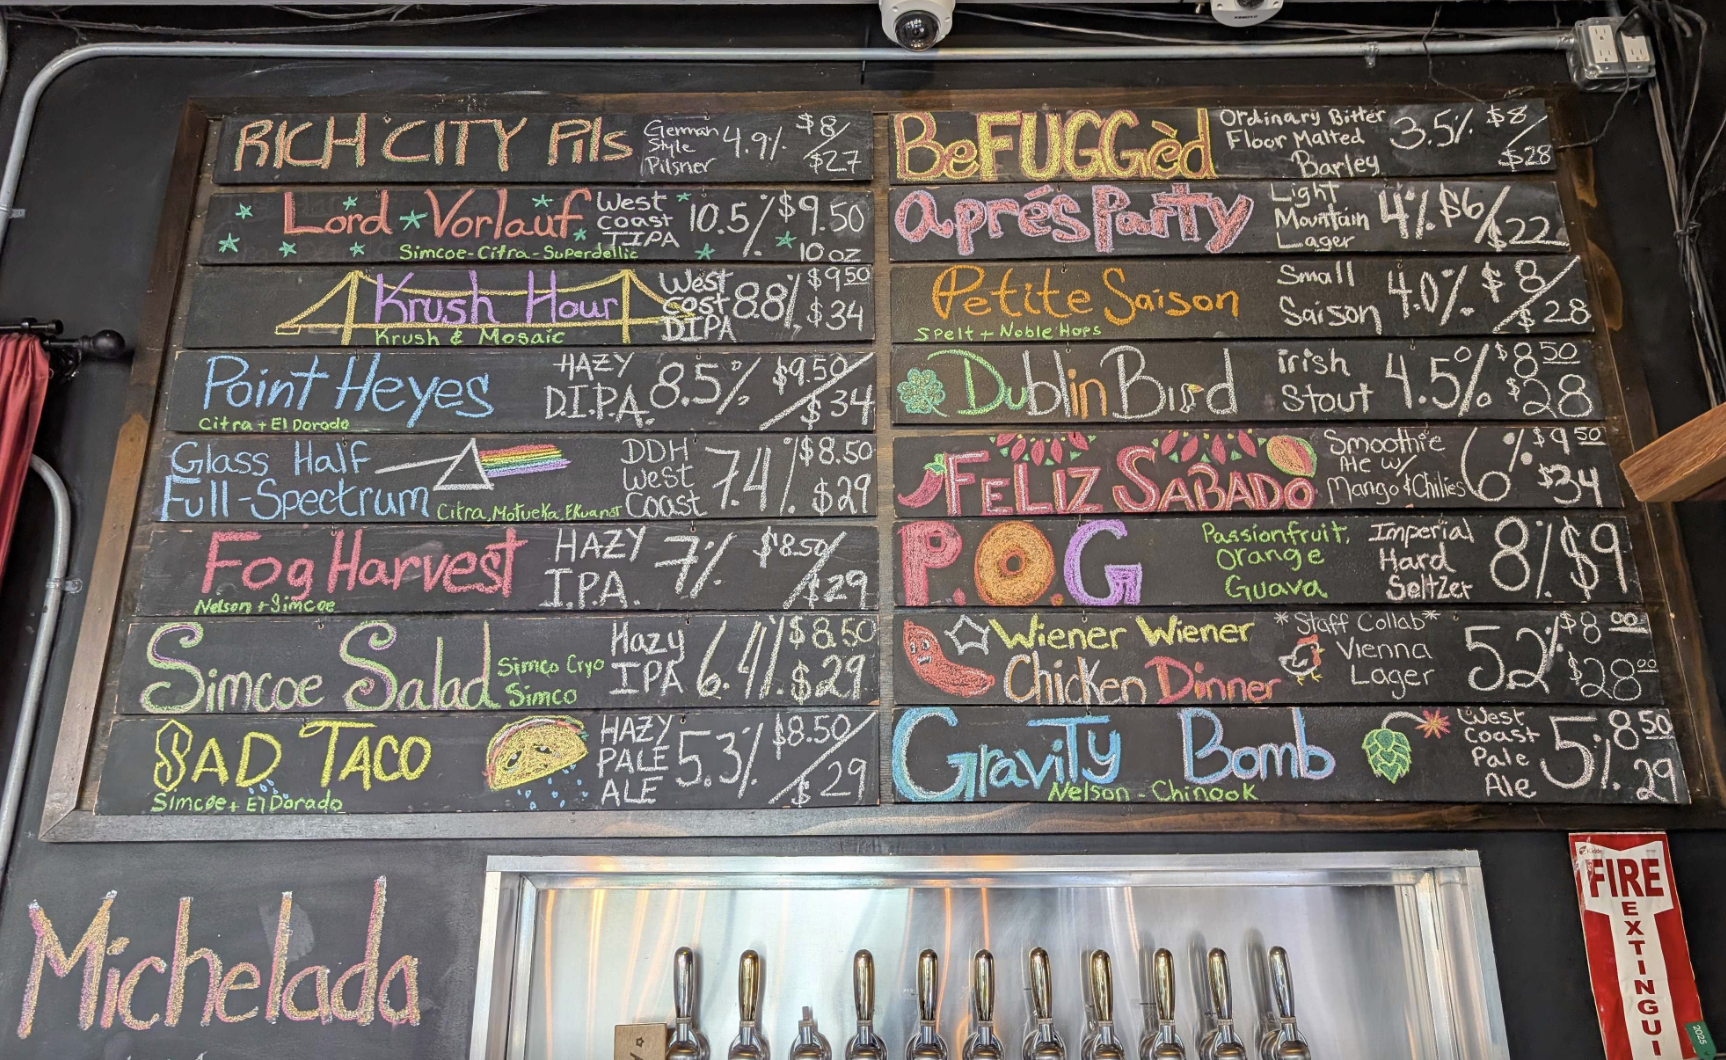 RICH CITY Pils German Style Pilsner 4.9% $8/$27
Lord Vorlauf West Coast TIPA 10.5% $9.50 10oz
Simcoe-Citra-Superdellic
Krush Hour West Cost DIPA 8.8% $9.50 $34
Krush & Mosaic
Point Heyes HAZY D.I.P.A. 8.5% $9.50/$34
Citra + El Dorado
Glass Half Full-Spectrum DDH West Coast 7.4% $8.50 $29
Citra, Motueka, Ekuanot
Fog Harvest HAZY I.P.A. 7% $8.50/$29
Nelson + Simcoe
Simcoe Salad Simco Cryo Simco Hazy IPA 6.4% $8.50 $29
SAD TACO HAZY PALE ALE 5.3% $8.50/$29
Simcoe + El Dorado
BeFUGGèd Ordinary Bitter Floor Malted Barley 3.5% $8/$28
aprés Party Light Mountain Lager 4% $6/$22
Petite Saison Small Saison 4.0% $8/$28
Spelt + Noble Hops
Dublin Bird Irish Stout 4.5% $8.50 $28
FELIZ SABADO Smoothie Ale w/ Mango & Chilies 6% $9.50 $34
P.O.G Passionfruit, Orange Guava Imperial Hard Seltzer 8% $9
Wiener Wiener Chicken Dinner *Staff Collab* Vienna Lager 5.2% $8.00 $28.00
Gravity Bomb West Coast Pale Ale 5% 8.50 29
Nelson - Chinook
Michelada
FIRE
EXTINGUI
2025